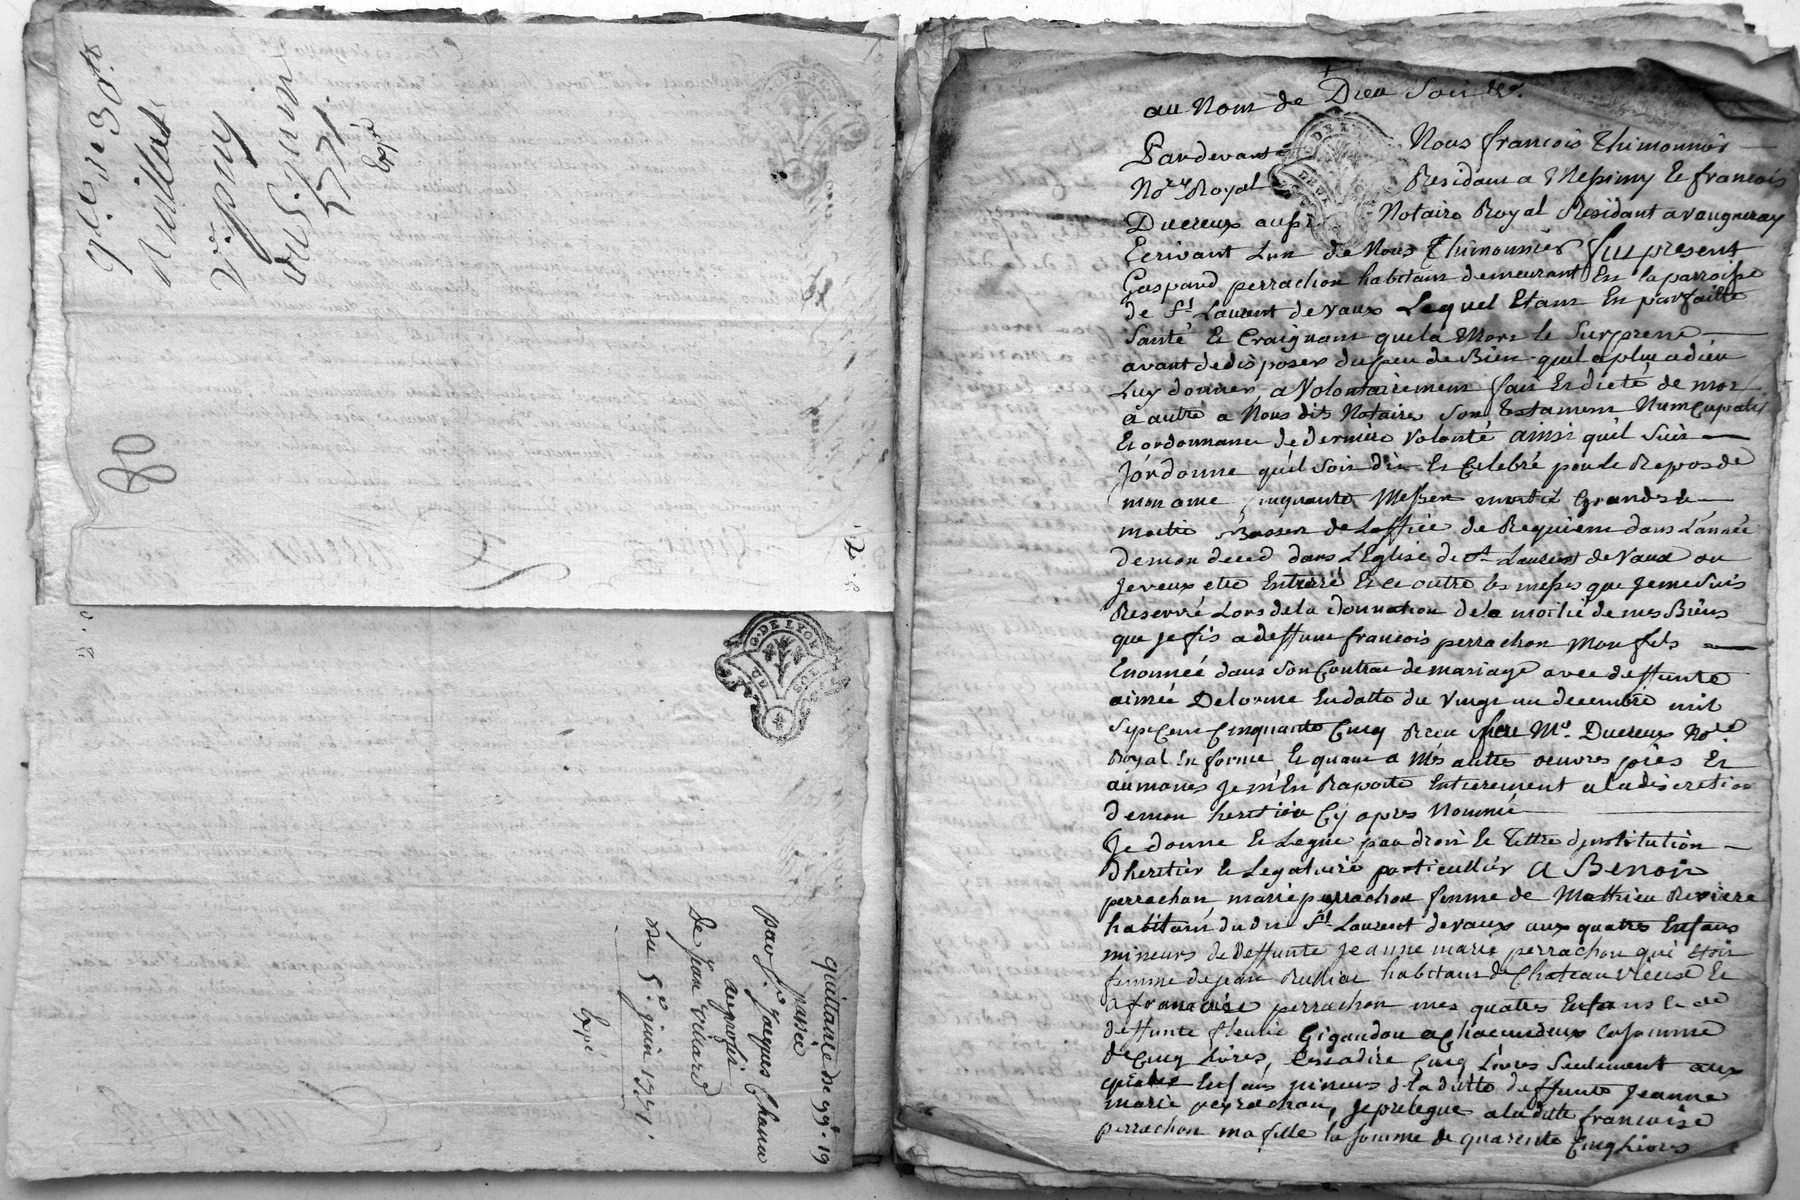 Ruillat
du 5e. juin
1771.
Expé
80
G. DE LYON
quittance de 99#. 19
passée
par Sr. Jacques Chana
au profit
De Jean Villard
du 5e. juin 1771.
Expé
au Nom de Dieu soit
Pardevant Nous francois Thimonnier
Nore. Royal Residant a Messimy & francois
Ducreux aussi Notaire Royal Residant a vaugneray
Ecrivant Lun de Nous Thimonnier fut present
Gaspard perrachon habitant demeurant En la parroisse
de St. Laurent de vaux Lequel Etant En parfaitte
Santé Et Craignant que la Mort le Surprene
avant de disposer du peu de Bien quil a plu a dieu
Luy donner, a Volontairement fait Et dicté de mot
à autre a Nous dits Notaires Son testament Nuncupatif
Et ordonnance de derniere Volonté ainsi quil Suit
Jordonne quil soit dit Et Celebré pour le Repos de
mon ame Cinquante Messes moitié Grandes &
moitié Basses de Loffice de Requiem dans Lannée
de mon deced dans LEglise de St. Laurent de Vaux ou
Je veux etre Enterré Et ce outre les messes que Je me suis
Reservé Lors de la donnation de la moitié de mes Biens
que Je fis a deffunt francois perrachon Mon fils
Enonnée dans Son Contrat de mariage avec deffunte
aimée Delorme En datte du Vingt un decembre mil
Sept Cent Cinquante Cinq Recu feu Me. Ducreux Nore.
Royal En forme, Et quant a Mes autres oeuvres pies Et
aumones Je m'En Raporte Entierement a la discretion
de mon heritier Cy apres Nommé
Je donne Et Legue par droit Et Tittre dinstitution
dheritier & Legataire particullier A Benoit
perrachon, marie perrachon femme de Mathieu Reviere
habitant du dit St. Laurent de vaux aux quatre Enfans
mineurs de Deffunte Jeanne marie perrachon qui Etoit
femme de jean Rulliat habitant de Chateau Vieux Et
a francoise perrachon mes quatres Enfans & de
deffunte fleurie Gigaudon a Chacun deux la somme
de Cinq Livres, Cest a dire Cinq Livres Seulement aux
quatre Enfans mineurs de la ditte deffunte Jeanne
marie perrachon, Je prelegue a la ditte francoise
perrachon ma fille la somme de quarente Cinq Livres